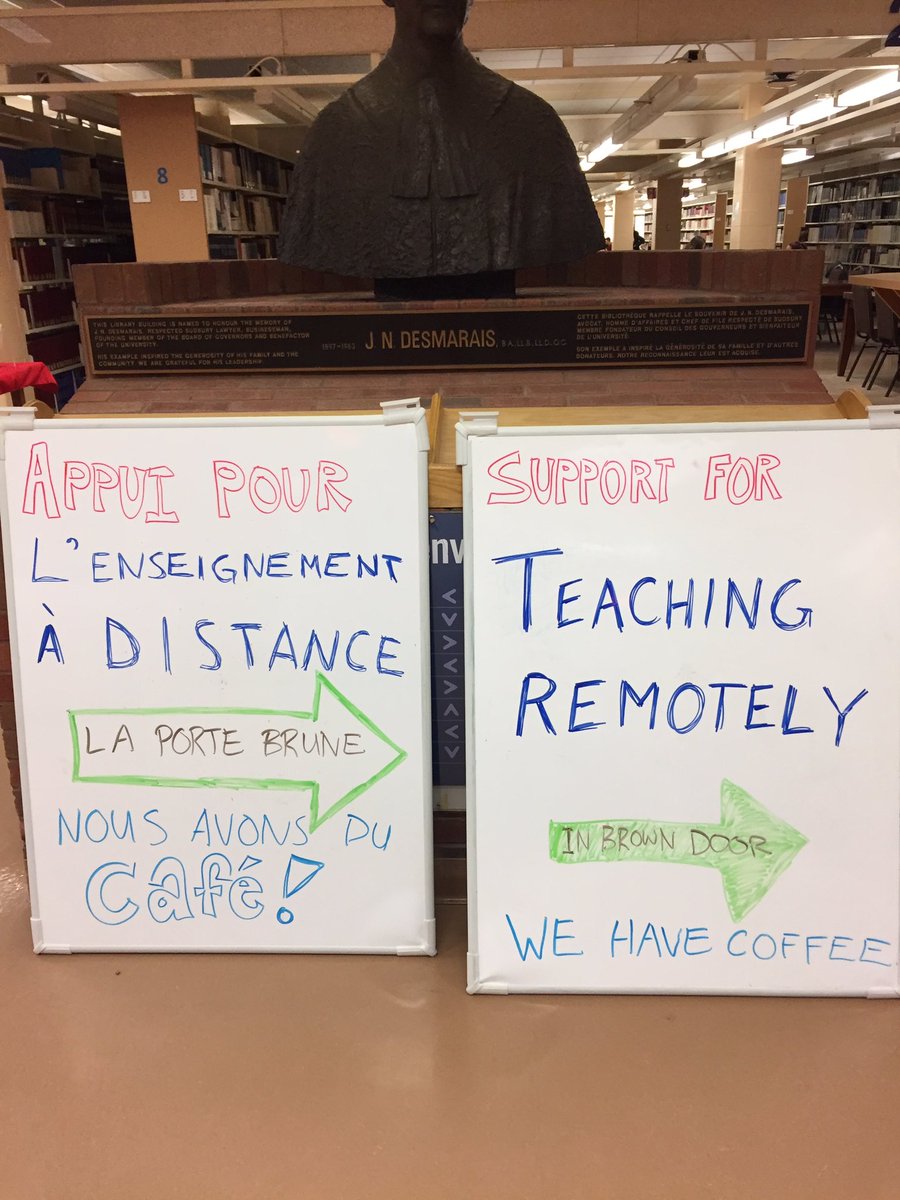 8
THIS LIBRARY BUILDING IS NAMED TO HONOUR THE MEMORY OF
J.N. DESMARAIS, RESPECTED SUDBURY LAWYER, BUSINESSMAN,
FOUNDING MEMBER OF THE BOARD OF GOVERNORS AND BENEFACTOR
OF THE UNIVERSITY.
HIS EXAMPLE INSPIRED THE GENEROSITY OF HIS FAMILY AND THE
COMMUNITY. WE ARE GRATEFUL FOR HIS LEADERSHIP.
1897-1983 J. N. DESMARAIS, B.A., LL.B., LL.D., Q.C.
CETTE BIBLIOTHÈQUE RAPPELLE LE SOUVENIR DE J.N. DESMARAIS,
AVOCAT, HOMME D'AFFAIRES ET CHEF DE FILE RESPECTÉ DE SUDBURY
MEMBRE FONDATEUR DU CONSEIL DES GOUVERNEURS ET BIENFAITEUR
DE L'UNIVERSITÉ.
SON EXEMPLE A INSPIRÉ LA GÉNÉROSITÉ DE SA FAMILLE ET D'AUTRES
DONATEURS. NOTRE RECONNAISSANCE LEUR EST ACQUISE.
APPUI POUR
L'ENSEIGNEMENT
À DISTANCE
LA PORTE BRUNE
NOUS AVONS DU
Café!
SUPPORT FOR
TEACHING
REMOTELY
IN BROWN DOOR
WE HAVE COFFEE